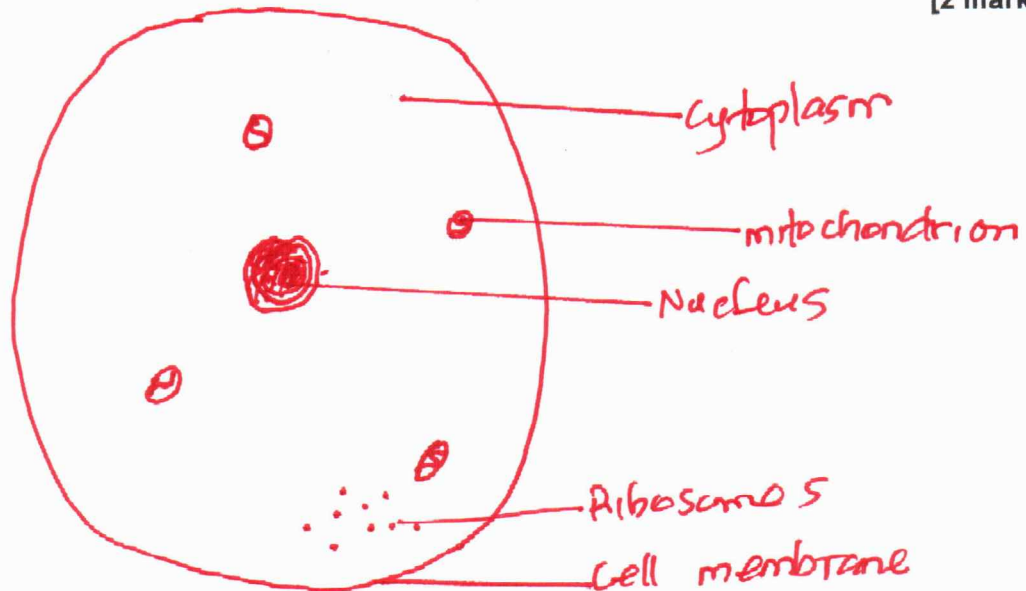 [2 mark
Cytoplasm
mitochondrion
Nucleus
Ribosomes
Cell membrane